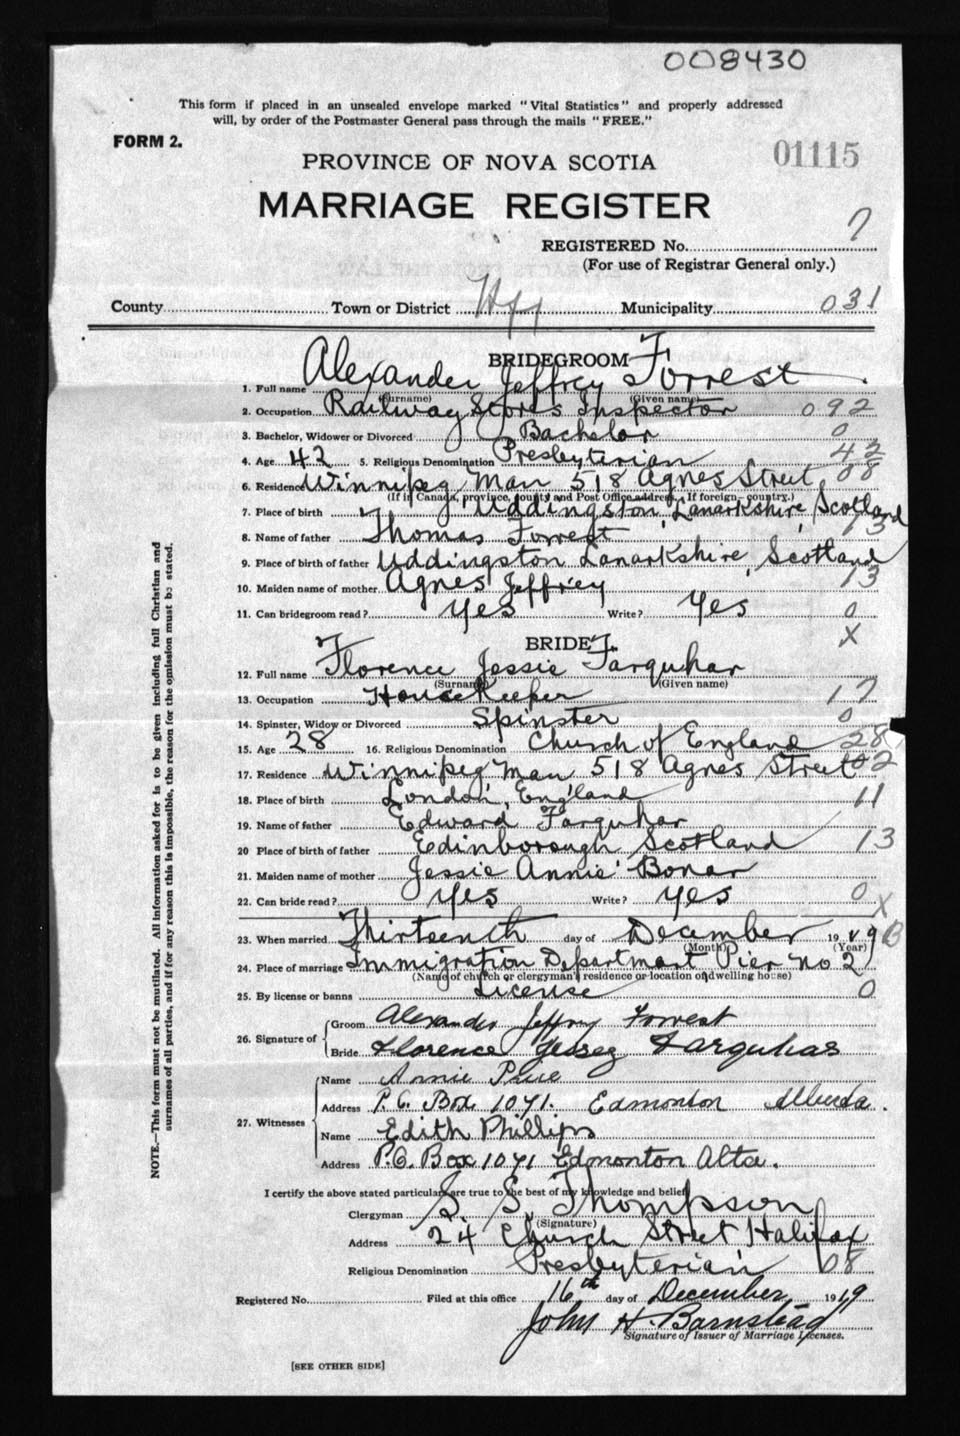 008430
This form if placed in an unsealed envelope marked "Vital Statistics" and properly addressed
will, by order of the Postmaster General pass through the mails "FREE."
FORM 2.
01115
PROVINCE OF NOVA SCOTIA
MARRIAGE REGISTER
REGISTERED No. 7
(For use of Registrar General only.)
County Town or District Hfx Municipality 031
BRIDEGROOM
1. Full name Alexander Jeffrey Forrest
(Surname) (Given name)
2. Occupation Railway Stores Inspector 092
3. Bachelor, Widower or Divorced Bachelor 0
4. Age 42 5. Religious Denomination Presbyterian 42
6. Residence Winnipeg Man 518 Agnes Street 08
(If in Canada, province, county and Post Office address. If foreign—country.)
7. Place of birth Uddingston Lanarkshire Scotland
8. Name of father Thomas Forrest 13
9. Place of birth of father Uddingston Lanarkshire, Scotland
10. Maiden name of mother Agnes Jeffrey 13
11. Can bridegroom read? Yes Write? Yes 0
X
BRIDE
12. Full name Florence Jessie Farquhar
(Surname) (Given name)
13. Occupation HouseKeeper 17
14. Spinster, Widow or Divorced Spinster 0
15. Age 28 16. Religious Denomination Church of England 28
17. Residence Winnipeg Man 518 Agnes Street 02
18. Place of birth London, England 11
19. Name of father Edward Farquhar
20 Place of birth of father Edinborough Scotland 13
21. Maiden name of mother Jessie Annie Bonar
22. Can bride read? Yes Write? Yes 0
X
23. When married Thirteenth day of December 1919 B
(Month) (Year)
24. Place of marriage Immigration Department Pier No 2
(Name of church or clergyman's residence or location of dwelling house)
25. By license or banns License 0
26. Signature of Groom Alexander Jeffrey Forrest
Bride Florence Jessey Farquhar
27. Witnesses Name Annie Price
Address P.O. Box 1071. Edmonton Alberta.
Name Edith Phillips
Address P.O. Box 1071 Edmonton Alta.
I certify the above stated particulars are true to the best of my knowledge and belief
Clergyman S. S. Thompson
(Signature)
Address 24 Church Street Halifax
Religious Denomination Presbyterian 08
Registered No. Filed at this office 16th day of December 1919
John H. Barnstead
Signature of Issuer of Marriage Licenses.
[SEE OTHER SIDE]
NOTE.—This form must not be mutilated. All information asked for is to be given including full Christian and
surnames of all parties, and if for any reason this is impossible, the reason for the omission must be stated.